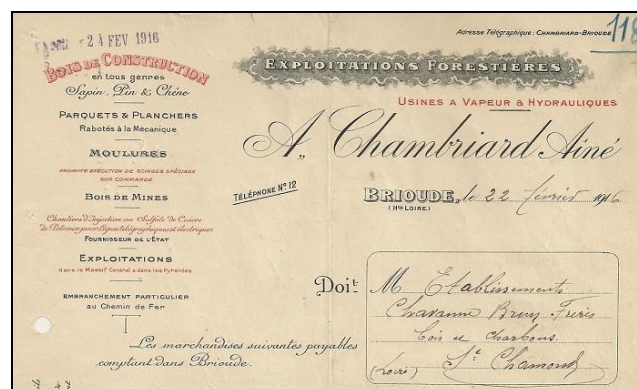 Adresse Télégraphique: CHAMBRIARD-BRIOUDE
118
24 FEV 1916
BOIS DE CONSTRUCTION
en tous genres
Sapin, Pin & Chêne
PARQUETS & PLANCHERS
Rabotés à la Mécanique
MOULURES
PROMPTE EXÉCUTION DE SCIAGES SPÉCIAUX
SUR COMMANDE
BOIS DE MINES
Chantiers d'Injection au Sulfate de Cuivre
de Poteaux pour Lignes télégraphiques et électriques
FOURNISSEUR DE L'ÉTAT
EXPLOITATIONS
dans le Massif Central & dans les Pyrénées
EMBRANCHEMENT PARTICULIER
au Chemin de Fer
EXPLOITATIONS FORESTIÈRES
USINES A VAPEUR & HYDRAULIQUES
A. Chambriard Ainé
TÉLÉPHONE Nº 12
BRIOUDE, le 22 février 1916
(Hte LOIRE)
Doit
M Etablissements
Chavanne Brun Frères
Bois et charbons
(Loire) St Chamond
Les marchandises suivantes payables
comptant dans Brioude.